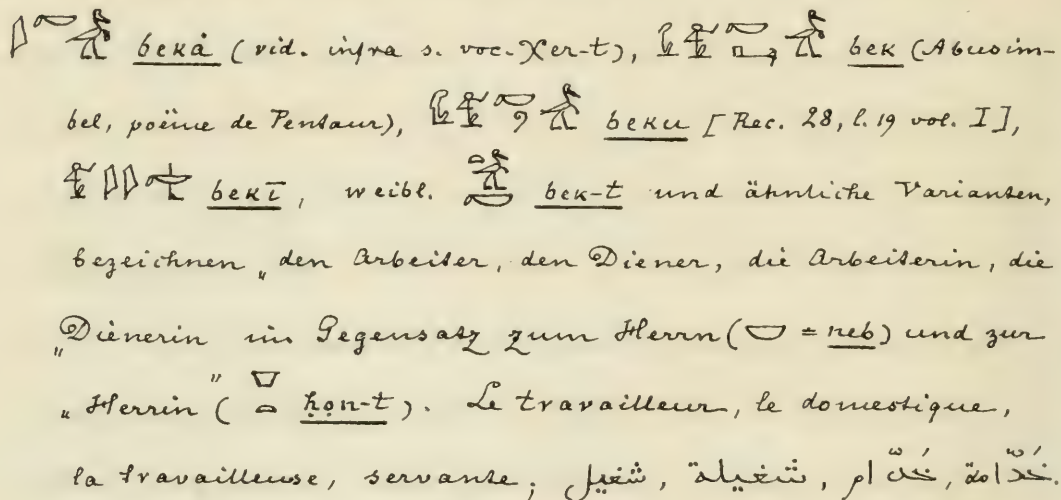 bekȧ (vid. infra s. voc. Xer-t), bek (Abusim-
bel, poëme de Pentaur), beku [Rec. 28, l. 19 vol. I],
bekī, weibl. bek-t und ähnliche Varianten,
bezeichnen „den Arbeiter, den Diener, die Arbeiterin, die
„Dienerin im Gegensatz zum Herrn (= neb) und zur
„Herrin“ (ḥon-t). Le travailleur, le domestique,
la travailleuse, servante; شغيل, شغيلة, خدّام, خدّامة.